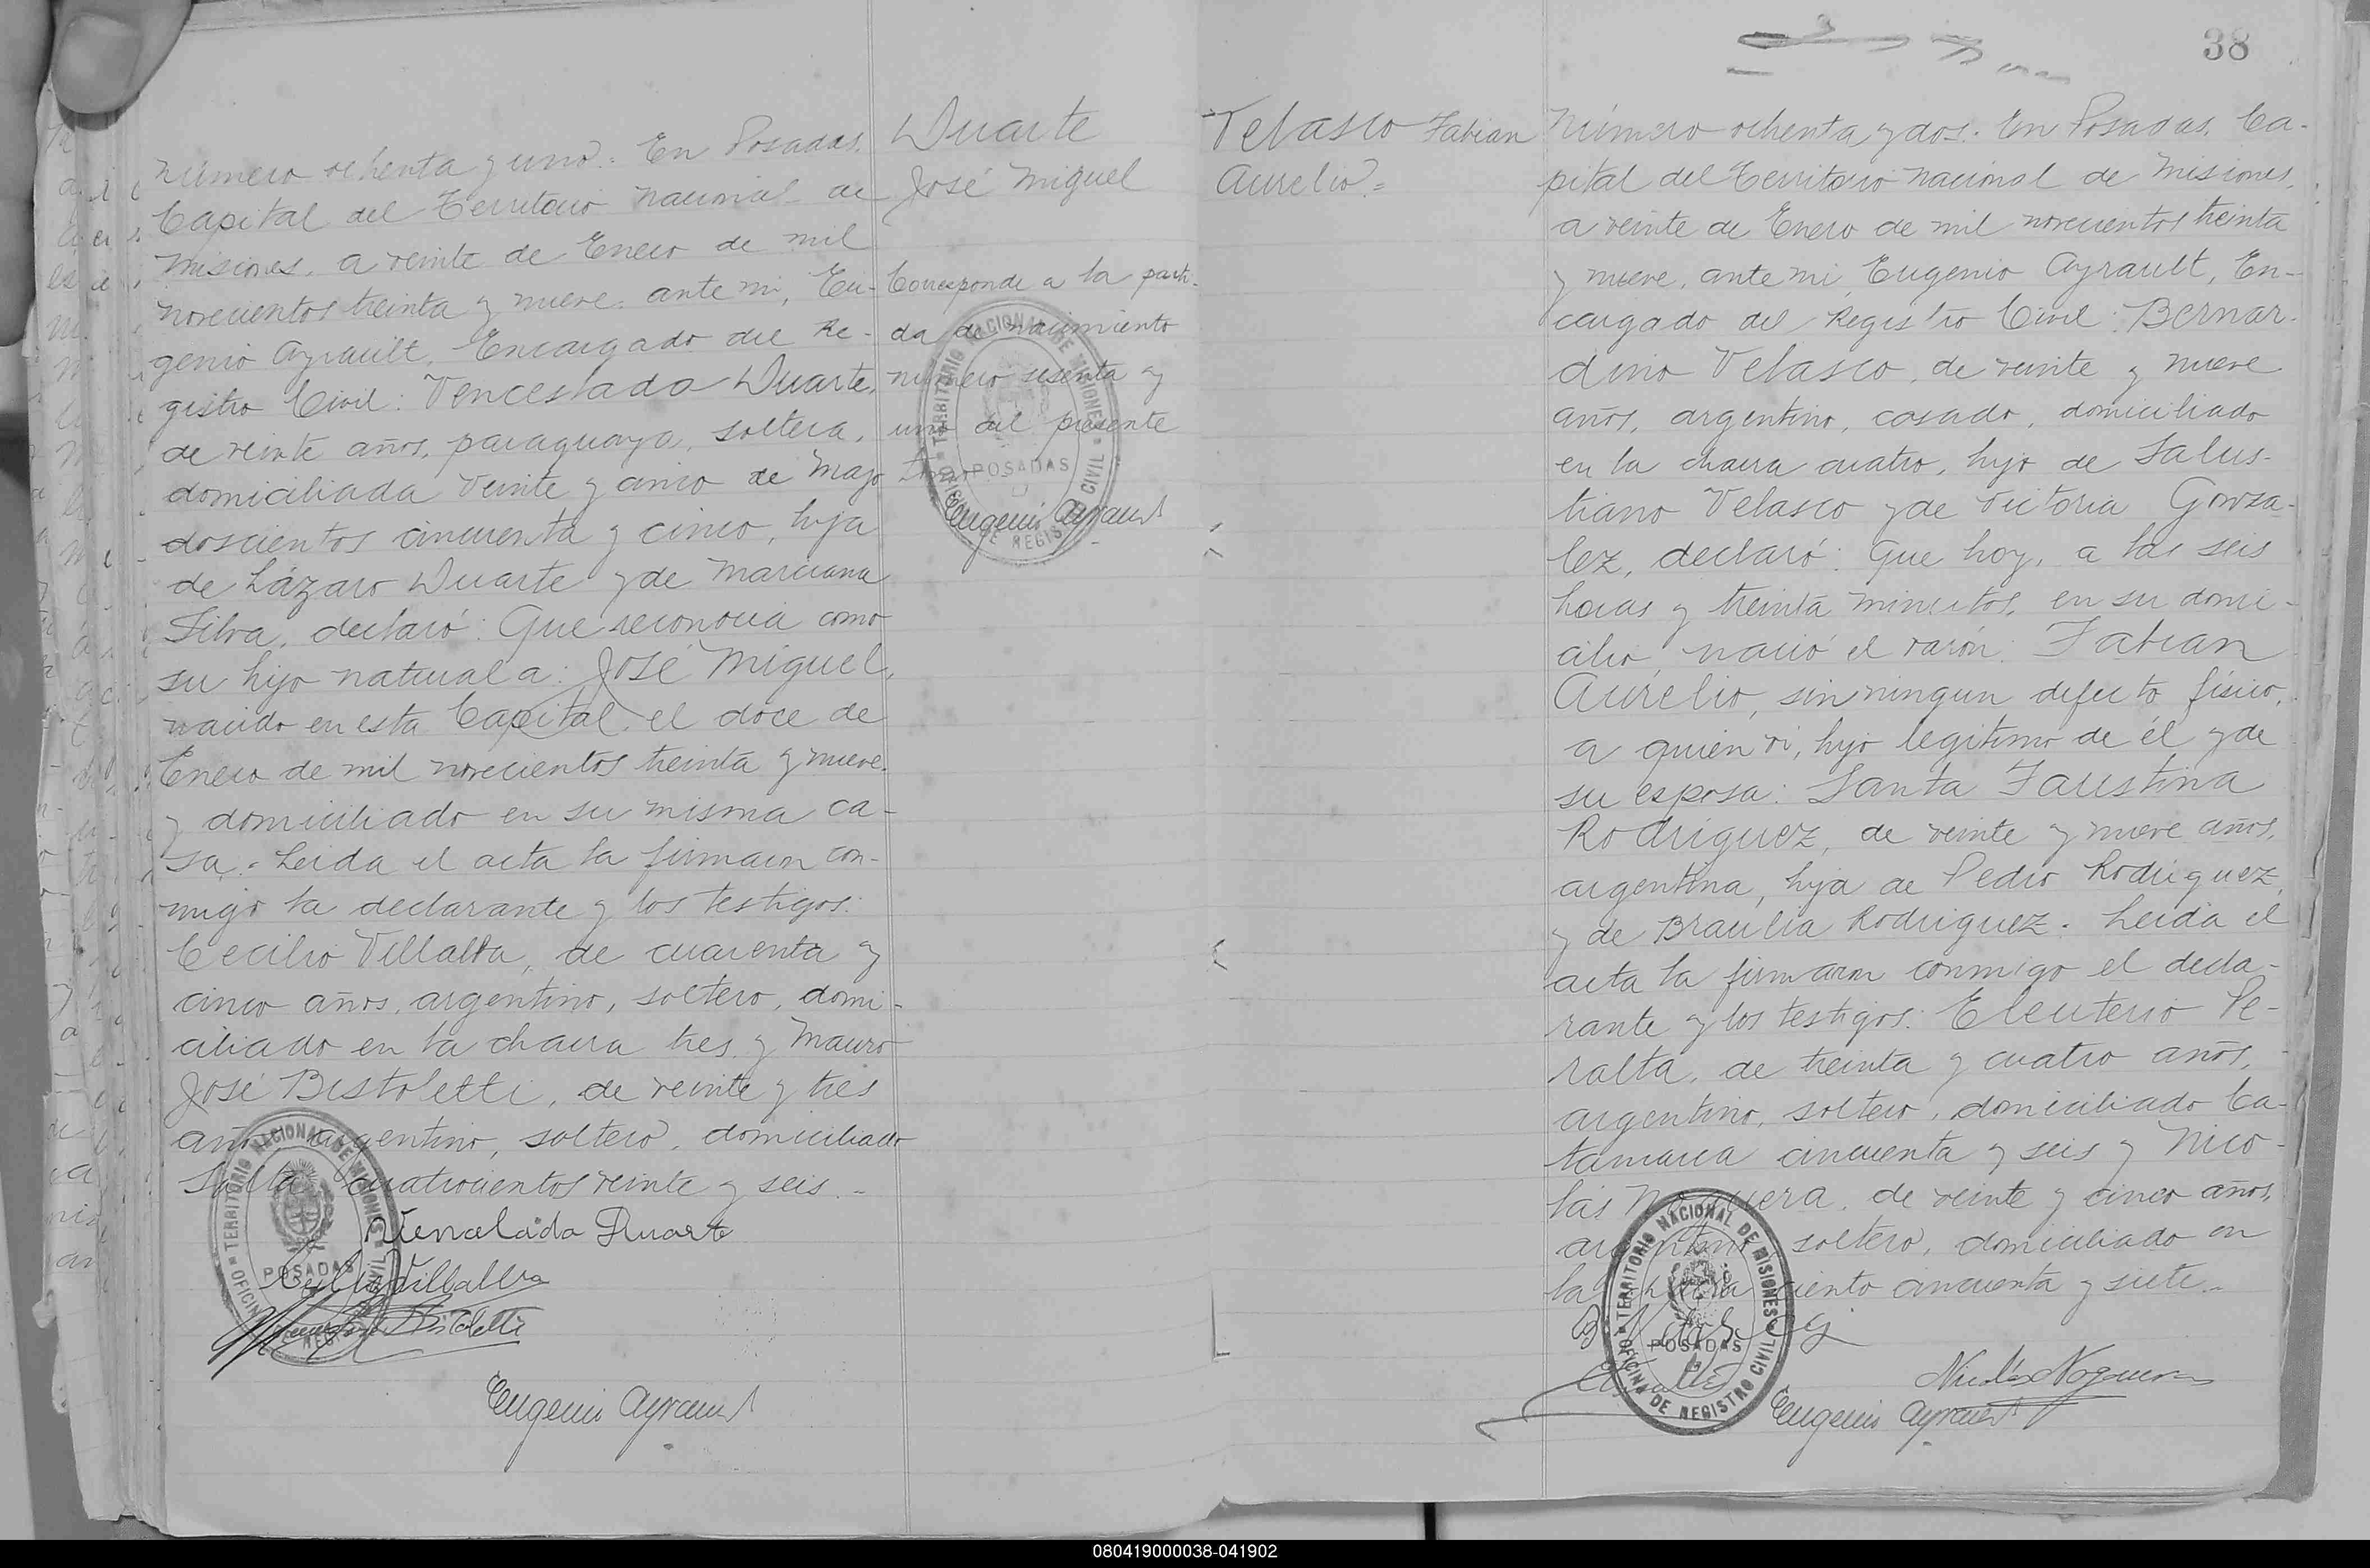 Número ochenta y uno. En Posadas,
Capital del Territorio Nacional de
Misiones, a veinte de Enero de mil
novecientos treinta y nueve, ante mi, Eu-
genio Ayrault, Encargado del Re-
gistro Civil: Venceslada Duarte,
de veinte años, paraguaya, soltera,
domiciliada Veinte y cinco de Mayo
doscientos cincuenta y cinco, hija
de Lázaro Duarte y de Marciana
Silva, declaró: Que reconocia como
su hijo natural a: José Miguel,
nacido en esta Capital, el doce de
Enero de mil novecientos treinta y nueve
y domiciliado en su misma ca-
sa.= Leida el acta la firmaron con-
migo la declarante y los testigos:
Cecilio Villalba, de cuarenta y
cinco años, argentino, soltero, domi-
ciliado en la chacra tres y Mauro
José Bistoletti, de veinte y tres
años, argentino, soltero, domiciliado
Salta cuatrocientos veinte y seis.=
Venceslada Duarte
Cecilio Villalba
Bistoletti
Eugenio Ayrault
TERRITORIO NACIONAL DE MISIONES
POSADAS
OFICINA DE REGISTRO CIVIL
Duarte
José Miguel
Corresponde a la parti-
da de nacimiento
número sesenta y
uno del presente
tomo
Eugenio Ayrault
TERRITORIO NACIONAL DE MISIONES
POSADAS
OFICINA DE REGISTRO CIVIL
38
Velasco Fabian
Aurelio.=
Número ochenta y dos. En Posadas, Ca-
pital del Territorio Nacional de Misiones,
a veinte de Enero de mil novecientos treinta
y nueve, ante mi, Eugenio Ayrault, En-
cargado del Registro Civil: Bernar-
dino Velasco, de veinte y nueve
años, argentino, casado, domiciliado
en la chacra cuatro, hijo de Salus-
tiano Velasco y de Victoria Gonza-
lez, declaró: Que hoy, a las seis
horas y treinta minutos, en su domi-
cilio, nació el varón: Fabian
Aurelio, sin ningun defecto físico,
a quien vi, hijo legitimo de él y de
su esposa: Santa Faustina
Rodriguez, de veinte y nueve años,
argentina, hija de Pedro Rodriguez
y de Braulia Rodriguez. Leida el
acta la firmaron conmigo el decla-
rante y los testigos: Eleuterio Pe-
ralta, de treinta y cuatro años,
argentino, soltero, domiciliado Ca-
tamarca cincuenta y seis y Nico-
lás Noguera, de veinte y cinco años,
argentino, soltero, domiciliado en
la chacra ciento cincuenta y siete.=
Nicolás Noguera
Eugenio Ayrault
TERRITORIO NACIONAL DE MISIONES
POSADAS
OFICINA DE REGISTRO CIVIL
080419000038-041902